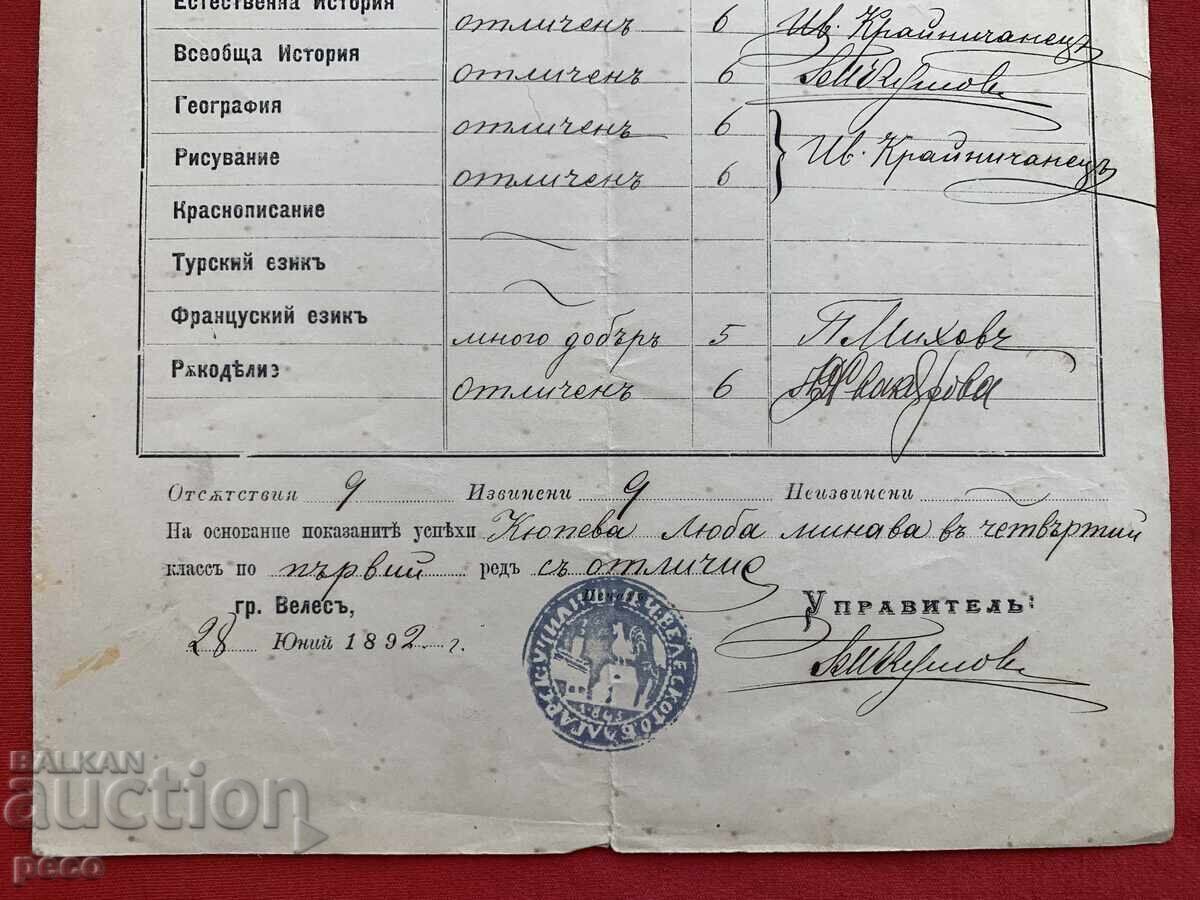 Естественна История отличенъ 6 Ив. Крайничанецъ
Всеобща История отличенъ 6
География отличенъ 6
Рисувание отличенъ 6 Ив. Крайничанецъ
Краснописание
Турский езикъ
Француский езикъ много добъръ 5 П. Миховъ
Рѫкодѣлиз отличенъ 6
Отсѫтствия 9 Извинени 9 Неизвинени
На основание показанитѣ успѣхи Кюпева Люба минава въ четвъртий
классъ по първий редъ съ отличие
Печать
гр. Велесъ, Управитель:
28 Юний 1892 г.
BALKAN
auction
peco